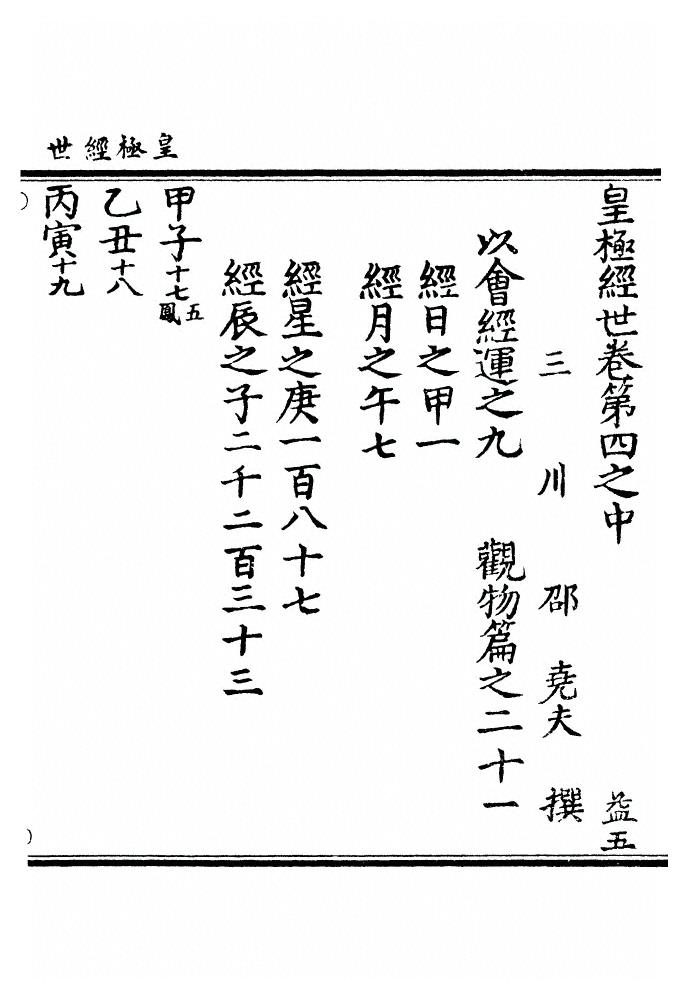 皇極經世
皇極經世卷第四之中 益五
三川邵堯夫撰
以會經運之九 觀物篇之二十一
經日之甲一
經月之午七
經星之庚一百八十七
經辰之子二千二百三十三
甲子十七 五鳳
乙丑十八
丙寅十九